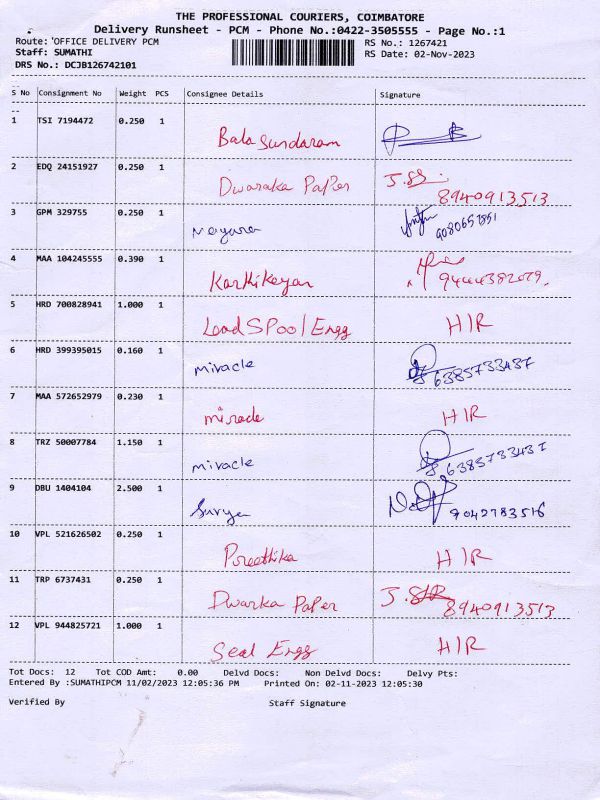 THE PROFESSIONAL COURIERS, COIMBATORE
Delivery Runsheet - PCM - Phone No.:0422-3505555 - Page No.:1
Route: 'OFFICE DELIVERY PCM RS No.: 1267421
Staff: SUMATHI RS Date: 02-Nov-2023
DRS No.: DCJB126742101
S No Consignment No Weight PCS Consignee Details Signature
1 TSI 7194472 0.250 1 Bala Sundaram
2 EDQ 24151927 0.250 1 Dwaraka Paper 8940913513
3 GPM 329755 0.250 1
4 MAA 104245555 0.390 1 Karthikeyan
5 HRD 700828941 1.000 1 Lead Spool Engg HIR
6 HRD 399395015 0.160 1 miracle 6385733437
7 MAA 572652979 0.230 1 miracle HIR
8 TRZ 50007784 1.150 1 miracle 6385733437
9 DBU 1404104 2.500 1 Surya 9042783516
10 VPL 521626502 0.250 1 Preethika HIR
11 TRP 6737431 0.250 1 Dwarka Paper 8940913513
12 VPL 944825721 1.000 1 Seal Engg HIR
Tot Docs: 12 Tot COD Amt: 0.00 Delvd Docs: Non Delvd Docs: Delvy Pts:
Entered By :SUMATHIPCM 11/02/2023 12:05:36 PM Printed On: 02-11-2023 12:05:30
Verified By Staff Signature